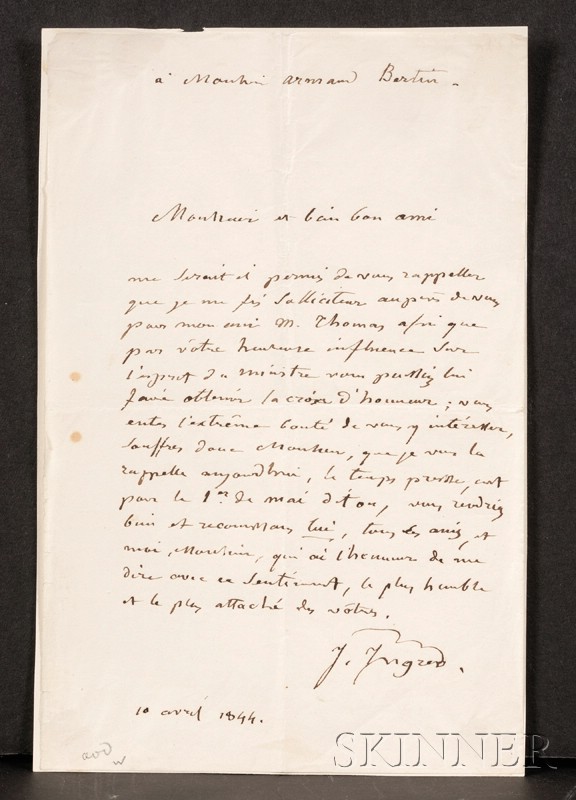 a Monsieur Armand Bertin.
Monsieur et bien bon ami
me serait il permis de vous rappeller
que je me fis solliciteur auprès de vous
pour mon ami M. Thomas afin que
par vôtre heureuse influence sur
l'esprit du ministre vous puissiez lui
faire obtenir la croix d'honneur; vous
eutes l'extrême bonté de vous y intéresser,
souffrez donc Monsieur, que je vous la
rappelle aujourd'hui, le temps presse, c'est
pour le 1er de mai dit on, vous rendriez
bien et reconnaissans lui, tous ses amis, et
moi Monsieur, qui ai l'honneur de me
dire avec ce sentiment, le plus humble
et le plus attaché des vôtres.
J. Ingres.
10 avril 1844.
SKINNER